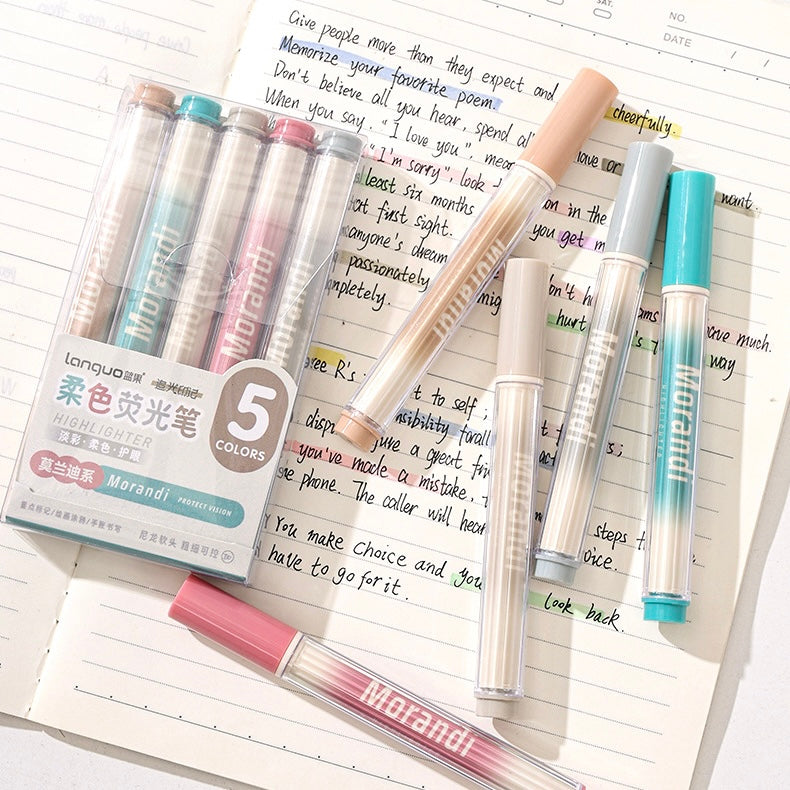 SAT.
NO.
DATE / /
Give people more than they expect and cheerfully.
Memorize your favorite poem.
Don't believe all you hear, spend al
When you say, "I love you", mean
"I'm sorry", look
least six months
at first sight.
anyone's dream
passionately
mpletely.
love or want.
on in the
you get m
on't h
hurt
have much.
way
ree R's.
t to self ;
nsibility for all
disp ure a great fri
you've made a mistake, t
e phone. The caller will hear
steps t
voice.
You make choice and you
have to go for it.
look back.
languo 蓝果
柔色荧光笔
HIGHLIGHTER
淡彩·柔色·护眼
5
COLORS
莫兰迪系
Morandi PROTECT VISION
重点标记/绘画涂鸦/手账书写
尼龙软头 粗细可控
Morandi
Morandi
Morandi
Morandi
Morandi
Morandi
Morandi
Morandi
HIGHLIGHTER
Morandi